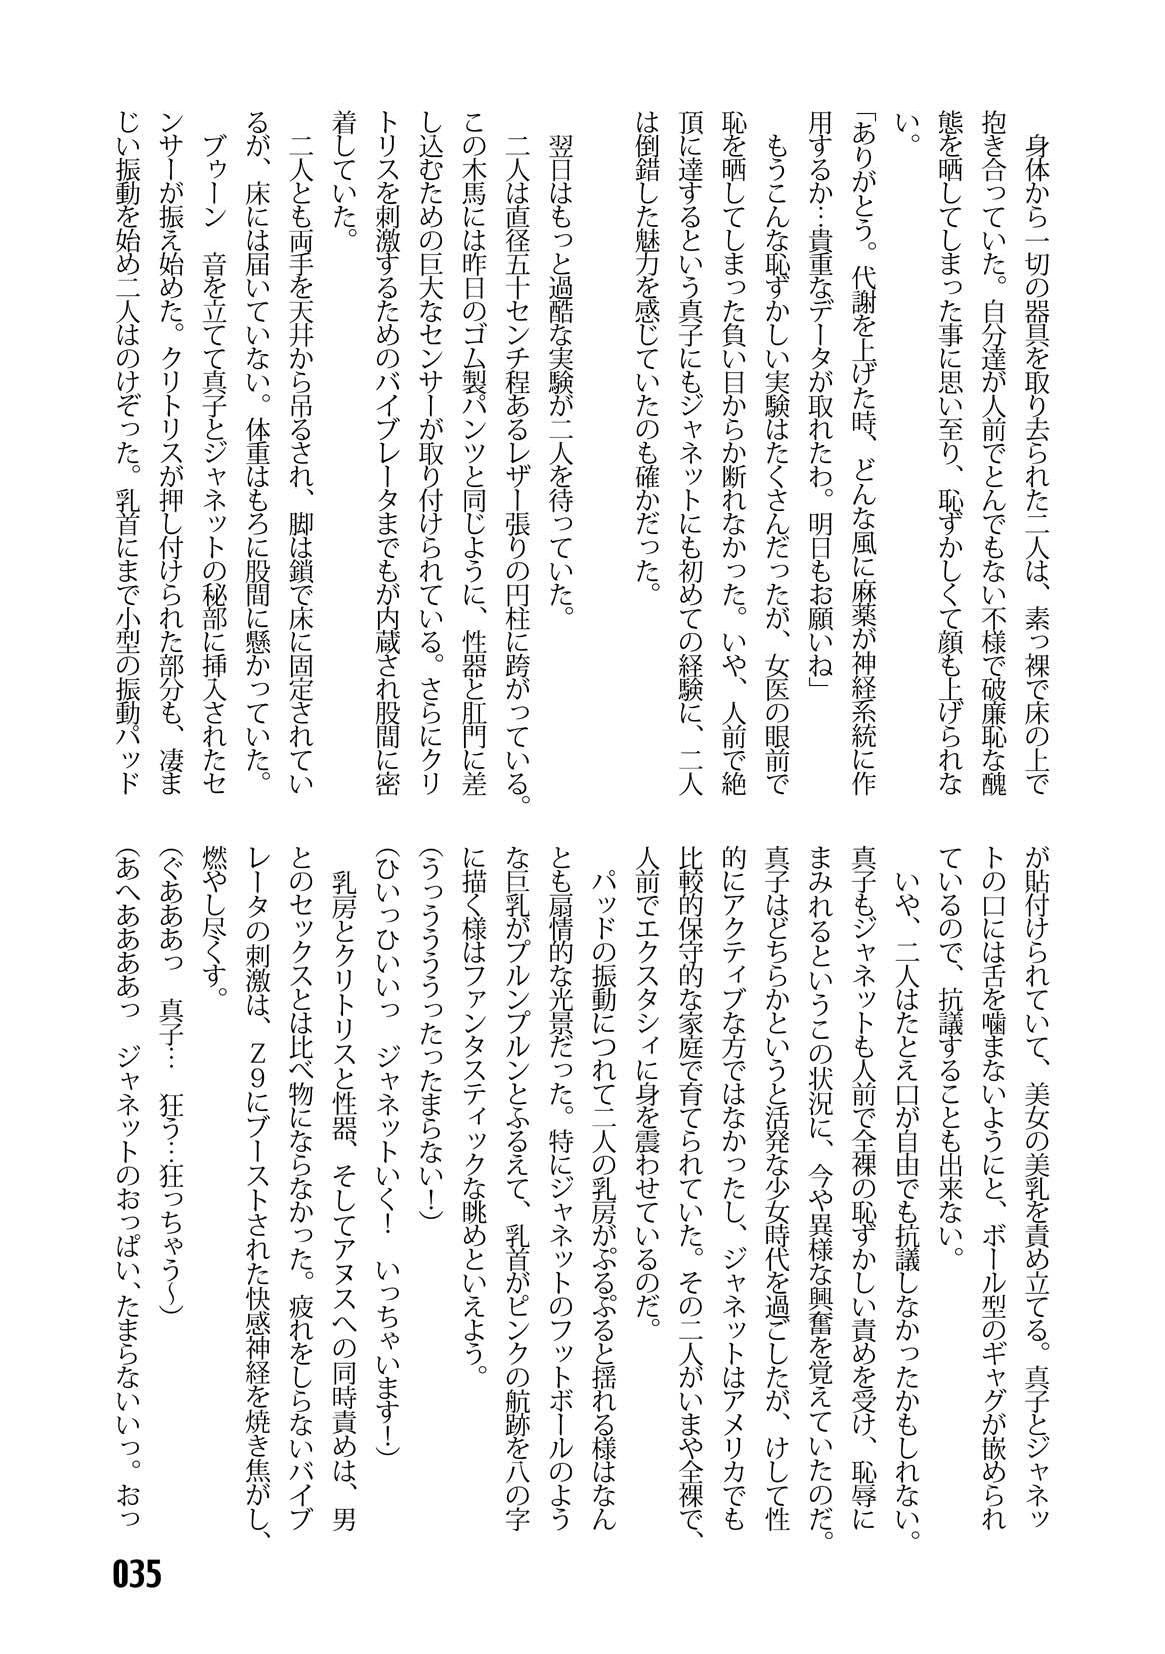 身体から一切の器具を取り去られた二人は、素っ裸で床の上で
抱き合っていた。自分達が人前でとんでもない不様で破廉恥な醜
態を晒してしまった事に思い至り、恥ずかしくて顔も上げられな
い。
「ありがとう。代謝を上げた時、どんな風に麻薬が神経系統に作
用するか…貴重なデータが取れたわ。明日もお願いね」
もうこんな恥ずかしい実験はたくさんだったが、女医の眼前で
恥を晒してしまった負い目からか断れなかった。いや、人前で絶
頂に達するという真子にもジャネットにも初めての経験に、二人
は倒錯した魅力を感じていたのも確かだった。
翌日はもっと過酷な実験が二人を待っていた。
二人は直径五十センチ程あるレザー張りの円柱に跨がっている。
この木馬には昨日のゴム製パンツと同じように、性器と肛門に差
し込むための巨大なセンサーが取り付けられている。さらにクリ
トリスを刺激するためのバイブレータまでもが内蔵され股間に密
着していた。
二人とも両手を天井から吊るされ、脚は鎖で床に固定されてい
るが、床には届いていない。体重はもろに股間に懸かっていた。
ブゥーン　音を立てて真子とジャネットの秘部に挿入されたセ
ンサーが振え始めた。クリトリスが押し付けられた部分も、凄ま
じい振動を始め二人はのけぞった。乳首にまで小型の振動パッド
が貼付けられていて、美女の美乳を責め立てる。真子とジャネッ
トの口には舌を噛まないようにと、ボール型のギャグが嵌められ
ているので、抗議することも出来ない。
いや、二人はたとえ口が自由でも抗議しなかったかもしれない。
真子もジャネットも人前で全裸の恥ずかしい責めを受け、恥辱に
まみれるというこの状況に、今や異様な興奮を覚えていたのだ。
真子はどちらかというと活発な少女時代を過ごしたが、けして性
的にアクティブな方ではなかったし、ジャネットはアメリカでも
比較的保守的な家庭で育てられていた。その二人がいまや全裸で、
人前でエクスタシィに身を震わせているのだ。
パッドの振動につれて二人の乳房がぷるぷると揺れる様はなん
とも扇情的な光景だった。特にジャネットのフットボールのよう
な巨乳がプルンプルンとふるえて、乳首がピンクの航跡を八の字
に描く様はファンタスティックな眺めといえよう。
（うっううううったったまらない！）
（ひいっひいいっ　ジャネットいく！　いっちゃいます！）
乳房とクリトリスと性器、そしてアヌスへの同時責めは、男
とのセックスとは比べ物にならなかった。疲れをしらないバイブ
レータの刺激は、Ｚ９にブーストされた快感神経を焼き焦がし、
燃やし尽くす。
（ぐあああっ　真子…　狂う…狂っちゃう～）
（あへああああっ　ジャネットのおっぱい、たまらないいっ。おっ
035